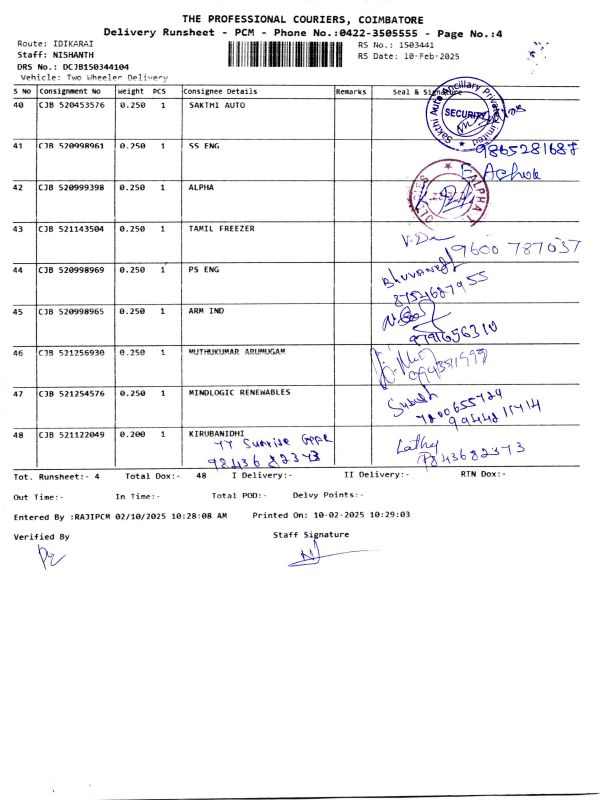 THE PROFESSIONAL COURIERS, COIMBATORE
Delivery Runsheet - PCM - Phone No.:0422-3505555 - Page No.:4
Route: IDIKARAI RS No.: 1503441
Staff: NISHANTH RS Date: 10-Feb-2025
DRS No.: DCJB150344104
Vehicle: Two Wheeler Delivery
S No Consignment No Weight PCS Consignee Details Remarks Seal & Signature
40 CJB 520453576 0.250 1 SAKTHI AUTO
Sakthi Auto Ancillary Private Limited
SECURITY
41 CJB 520998961 0.250 1 SS ENG 9865281687
42 CJB 520999398 0.250 1 ALPHA
43 CJB 521143504 0.250 1 TAMIL FREEZER
9600 787037
44 CJB 520998969 0.250 1 PS ENG
45 CJB 520998965 0.250 1 ARM IND
9791656310
46 CJB 521256930 0.250 1 MUTHUKUMAR ARUMUGAM
47 CJB 521254576 0.250 1 MINDLOGIC RENEWABLES
48 CJB 521122049 0.200 1 KIRUBANIDHI
Sunrise
98436 82373
Tot. Runsheet:- 4 Total Dox:- 48 I Delivery:- II Delivery:- RTN Dox:-
Out Time:- In Time:- Total POD:- Delvy Points:-
Entered By :RAJIPCM 02/10/2025 10:28:08 AM Printed On: 10-02-2025 10:29:03
Verified By Staff Signature